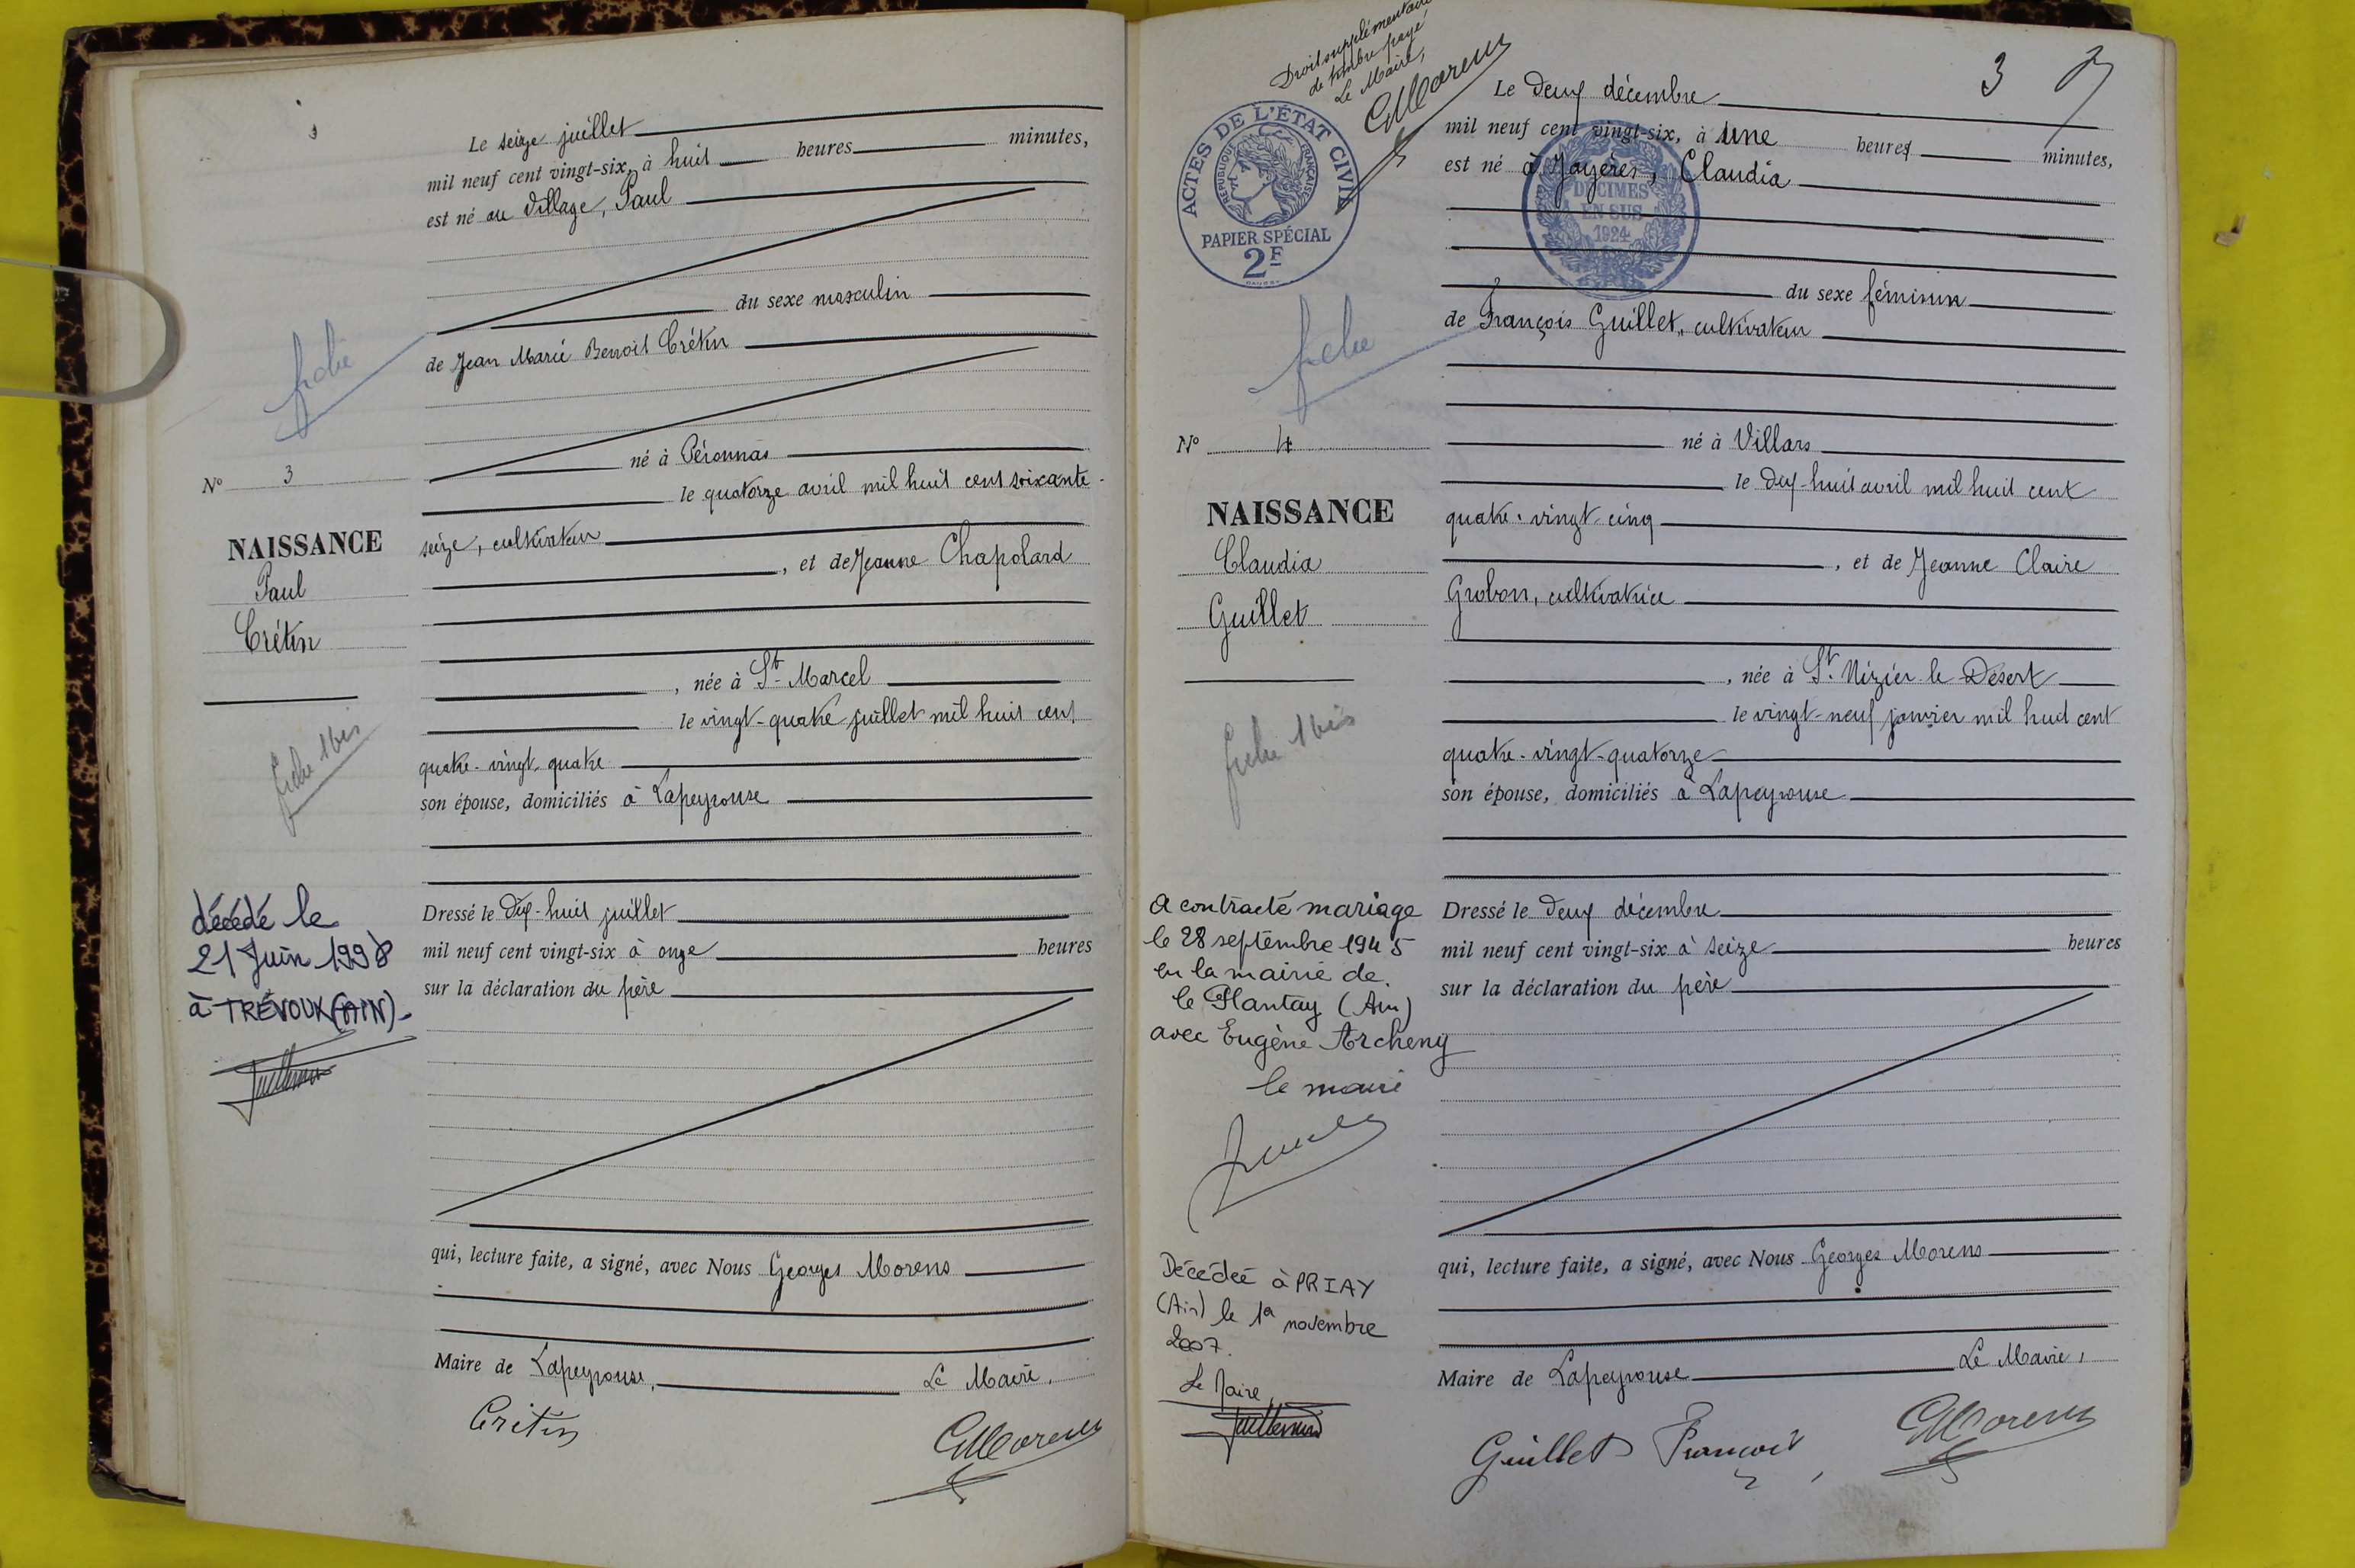 Le seize juillet
mil neuf cent vingt-six, à huit heures minutes,
est né au Village, Paul
du sexe masculin
de Jean Marie Benoit Crétin
né à Péronnas
le quatorze avril mil huit cent soixante-
seize, cultivateur
, et de Jeanne Chapolard
, née à St Marcel
le vingt-quatre juillet mil huit cent
quatre-vingt-quatre
son épouse, domiciliés à Lapeyrouse
Dressé le dix-huit juillet
mil neuf cent vingt-six à onze heures
sur la déclaration du père
qui, lecture faite, a signé, avec Nous Georges Morens
Maire de Lapeyrouse, Le Maire,
Crétin
GMorens
fiche
No 3
NAISSANCE
Paul
Crétin
fiche 1 bis
décédé le
21 Juin 1998
à TRÉVOUX (AIN)-
Droit supplémentaire
de timbre payé
Le Maire,
GMorens
ACTES DE L'ÉTAT CIVIL
RÉPUBLIQUE FRANÇAISE
PAPIER SPÉCIAL
2F
DÉCIMES
EN SUS
1924
3
Le deux décembre
mil neuf cent vingt-six, à une heures minutes,
est né à Jayères, Claudia
du sexe féminin
de François Guillet, cultivateur
né à Villars
le dix-huit avril mil huit cent
quatre-vingt-cinq
, et de Jeanne Claire
Grobon, cultivatrice
, née à St. Nizier le Désert
le vingt-neuf janvier mil huit cent
quatre-vingt-quatorze
son épouse, domiciliés à Lapeyrouse
Dressé le deux décembre
mil neuf cent vingt-six à seize heures
sur la déclaration du père
qui, lecture faite, a signé, avec Nous Georges Morens
Maire de Lapeyrouse Le Maire,
Guillet François
GMorens
fiche
No 4
NAISSANCE
Claudia
Guillet
fiche 1 bis
a contracté mariage
le 28 septembre 1945
en la mairie de
le Plantay (Ain)
avec Eugène Archeny
le maire
Décédée à PRIAY
(Ain) le 1er novembre
2007.
Le Maire,